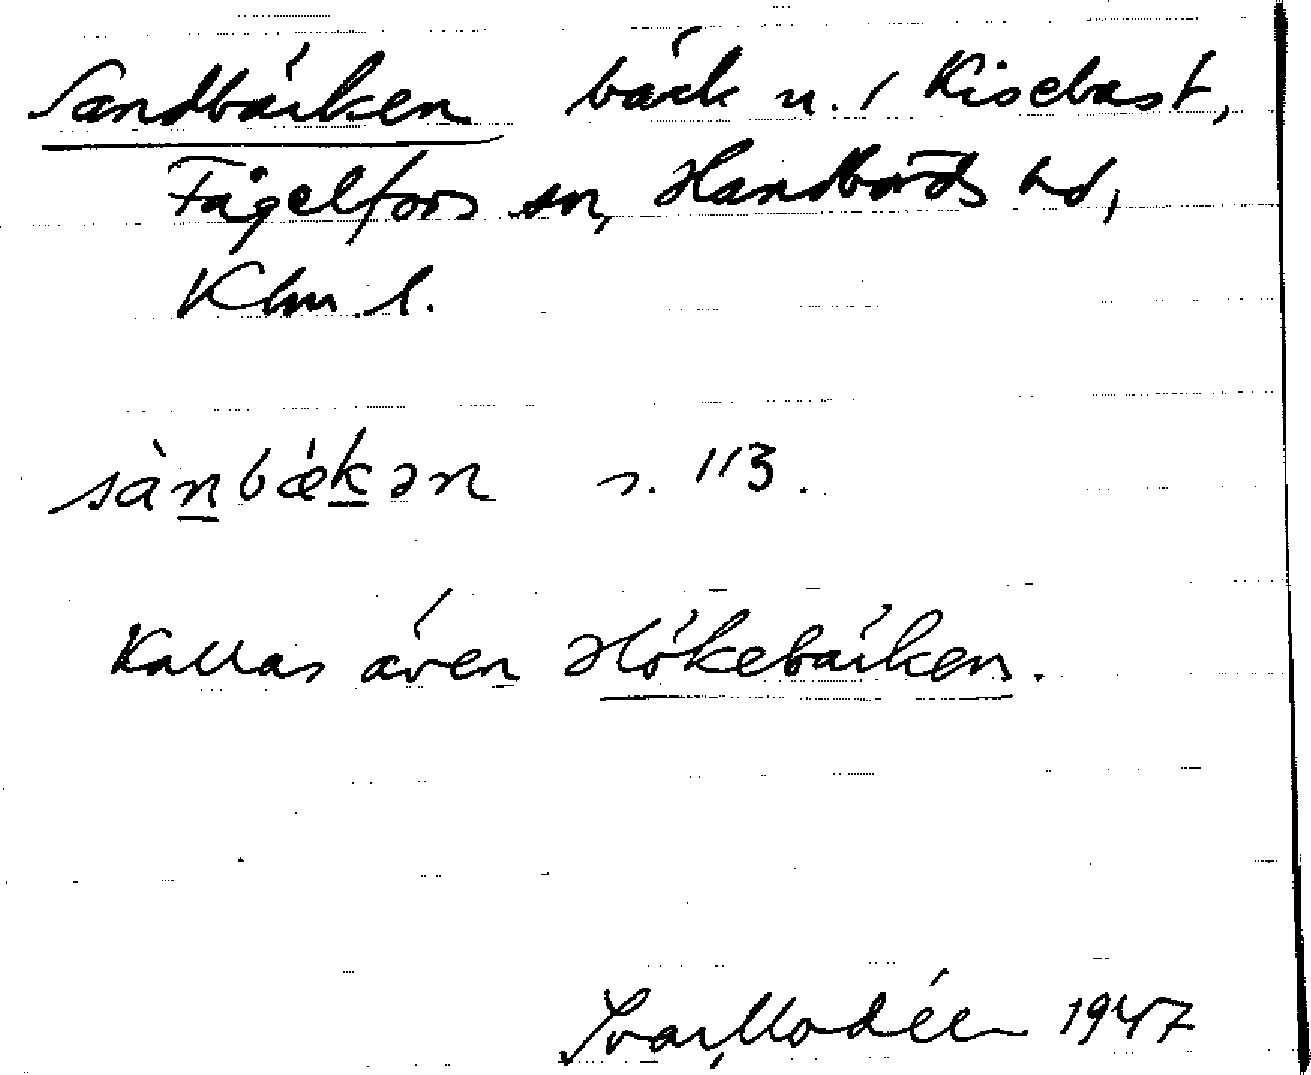 Sandbäcken bäck n. / Kisebast,
Fågelfors sn, Handbörds hd,
Klm. l.
sànbǽkən s. 113.
Kallas även Hökebäcken.
Ivar Modéer 1947